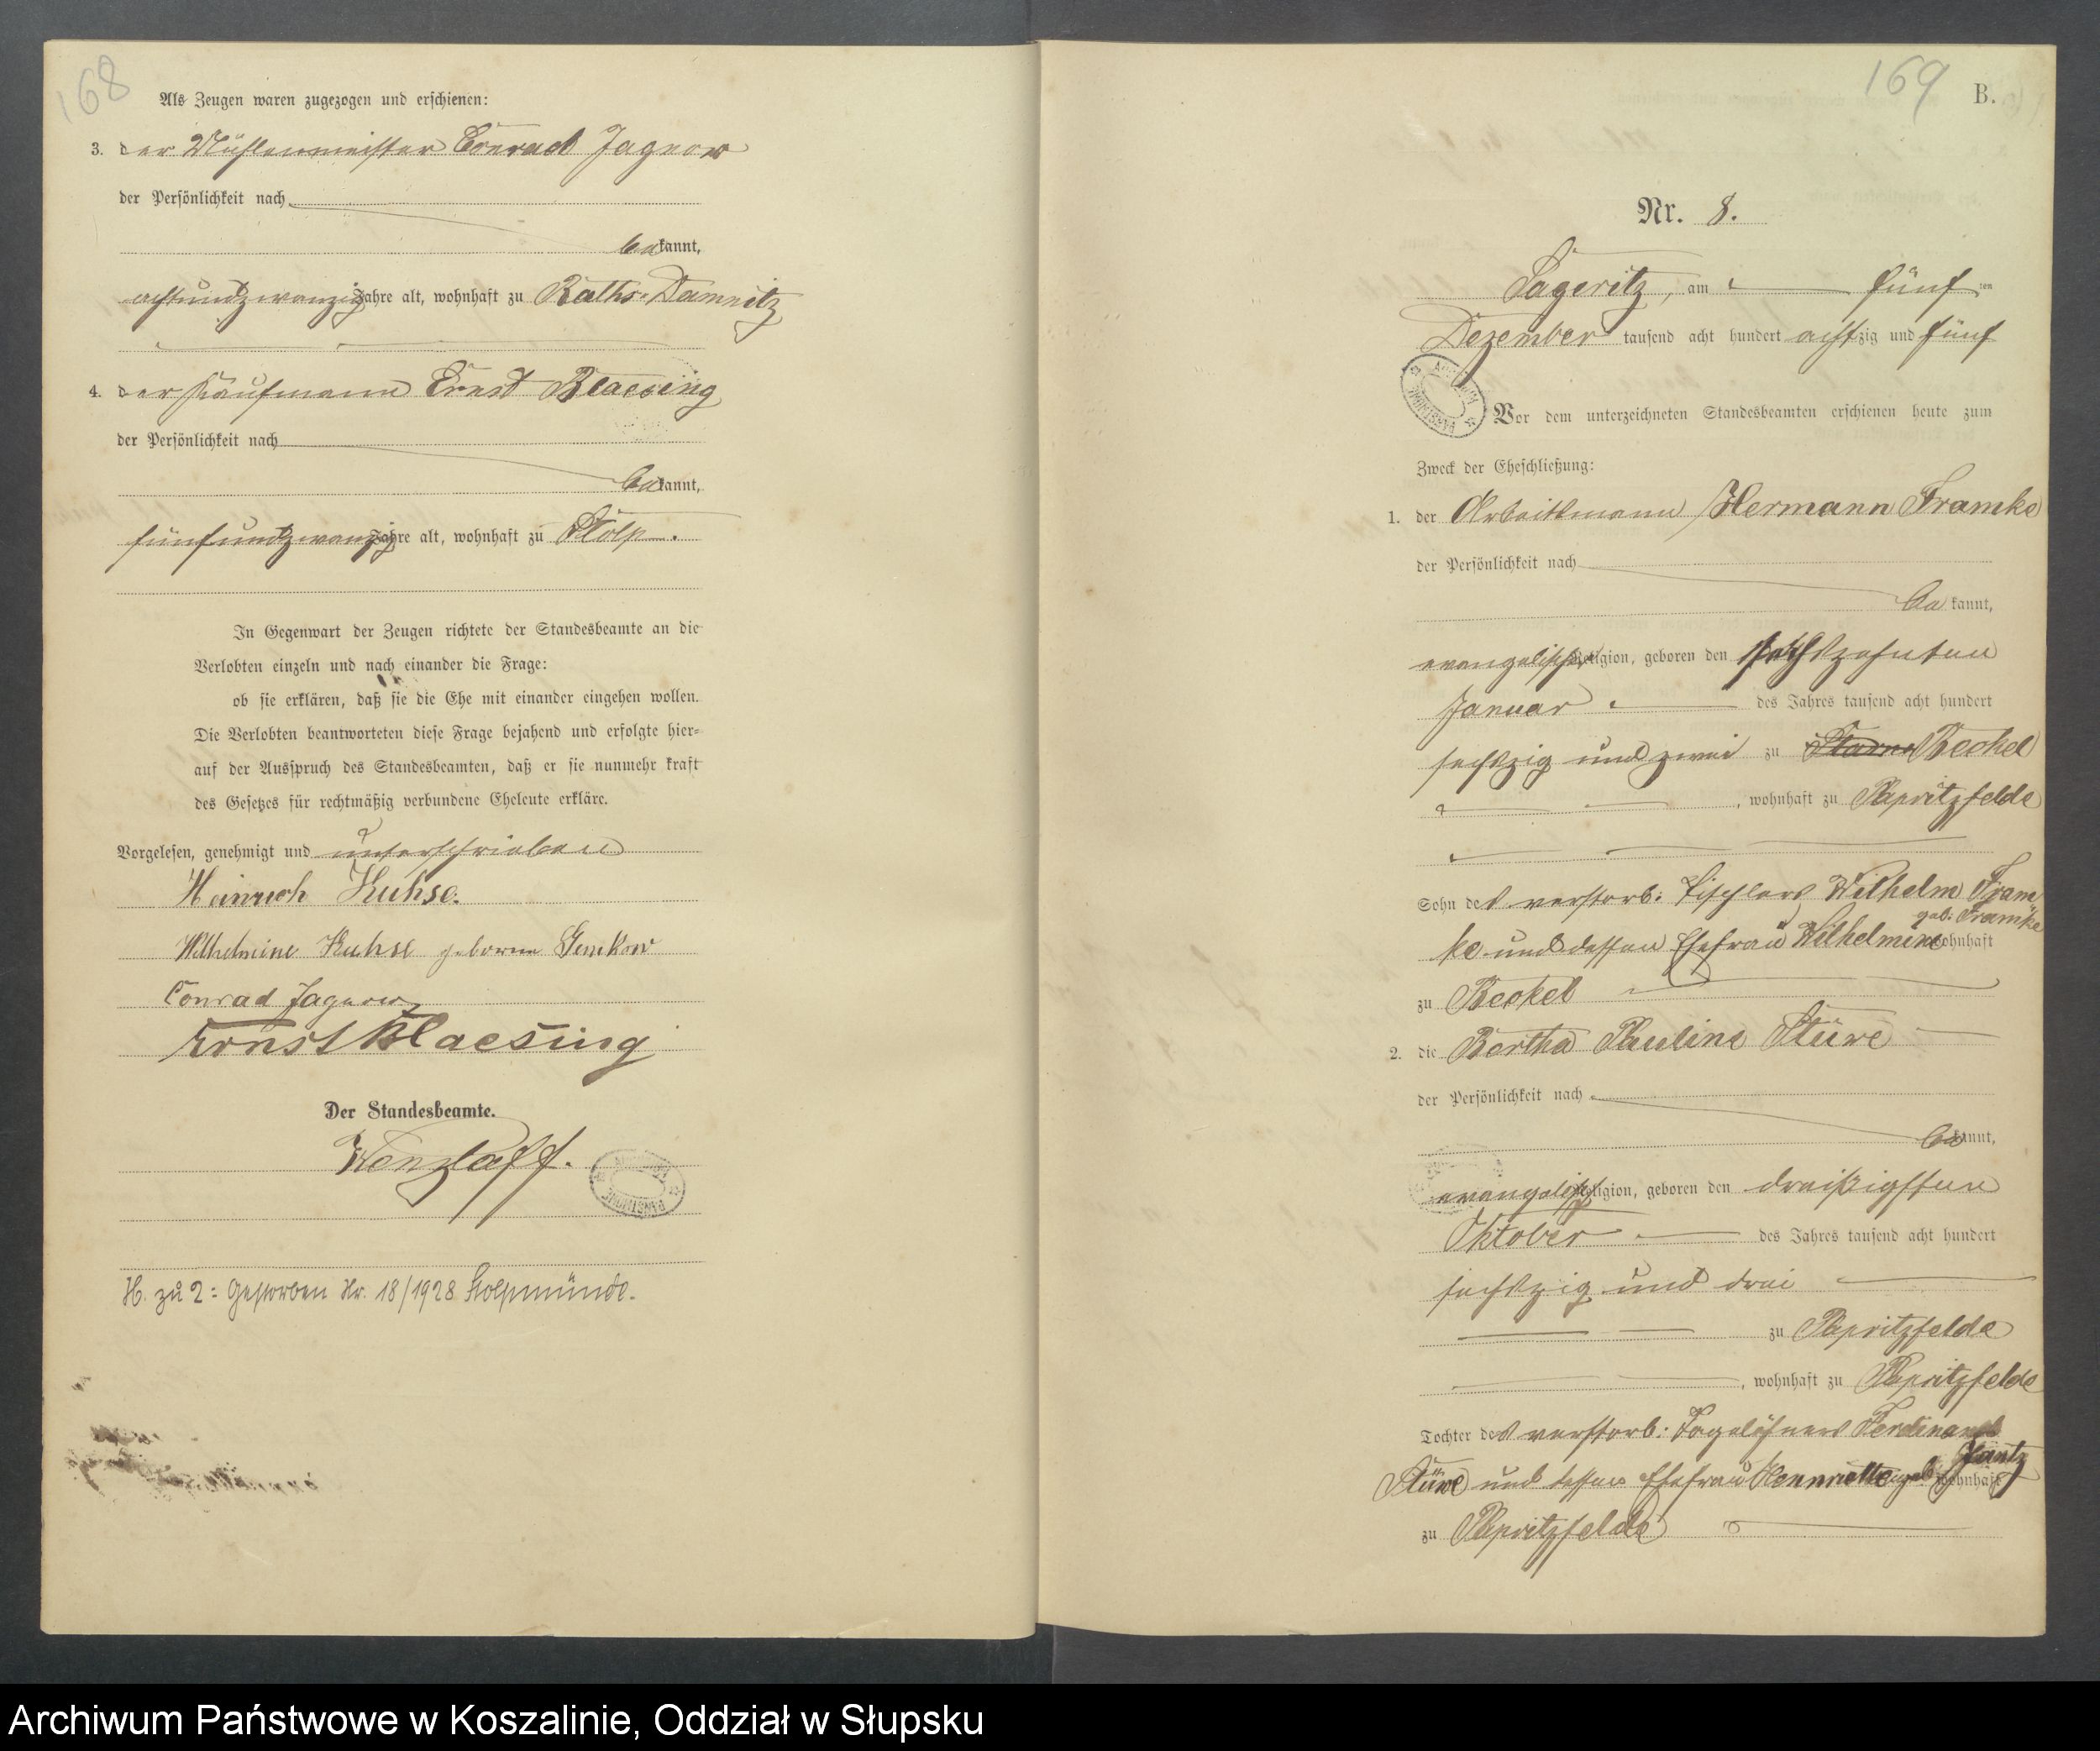 168
Als Zeugen waren zugezogen und erschienen:
3. der Mühlenmeister Conrad Jagnow
der Persönlichkeit nach
bekannt,
achtundzwanzig Jahre alt, wohnhaft zu Raths-Damnitz
4. der Kaufmann Ernst Blaesing
der Persönlichkeit nach
bekannt,
fünfundzwanzig Jahre alt, wohnhaft zu Stolp.
In Gegenwart der Zeugen richtete der Standesbeamte an die
Verlobten einzeln und nach einander die Frage:
ob sie erklären, daß sie die Ehe mit einander eingehen wollen.
Die Verlobten beantworteten diese Frage bejahend und erfolgte hier-
auf der Ausspruch des Standesbeamten, daß er sie nunmehr kraft
des Gesetzes für rechtmäßig verbundene Eheleute erkläre.
Vorgelesen, genehmigt und unterschrieben
Heinrich Kuhse.
Wilhelmine Kuhse geborne
Conrad Jagnow
Ernst Blaesing
Der Standesbeamte.
Wenzlaff.
H. zu 2: Gestorben Nr. 18/1928 Stolpmünde.
169
B.
Nr. 8.
Sageritz, am fünf ten
Dezember tausend acht hundert achtzig und fünf
Vor dem unterzeichneten Standesbeamten erschienen heute zum
Zweck der Eheschließung:
1. der Arbeitsmann Hermann Framke
der Persönlichkeit nach
bekannt,
evangelischer Religion, geboren den sechszehnten
Januar des Jahres tausend acht hundert
sechszig und zwei zu Beckel
, wohnhaft zu Papritzfelde
Sohn des verstorb: Tischlers Wilhelm Fram
geb: Framke
ke und dessen Ehefrau Wilhelmine wohnhaft
zu Beckel
2. die Bertha Pauline Stüwe
der Persönlichkeit nach
bekannt,
evangelischer Religion, geboren den dreißigsten
Oktober des Jahres tausend acht hundert
sechszig und drei
zu Papritzfelde
, wohnhaft zu Papritzfelde
Tochter des verstorb: Tagelöhners Ferdinand
Stüwe und dessen Ehefrau Henriette geb: Jantz wohnhaft
zu Papritzfelde
Archiwum Państwowe w Koszalinie, Oddział w Słupsku